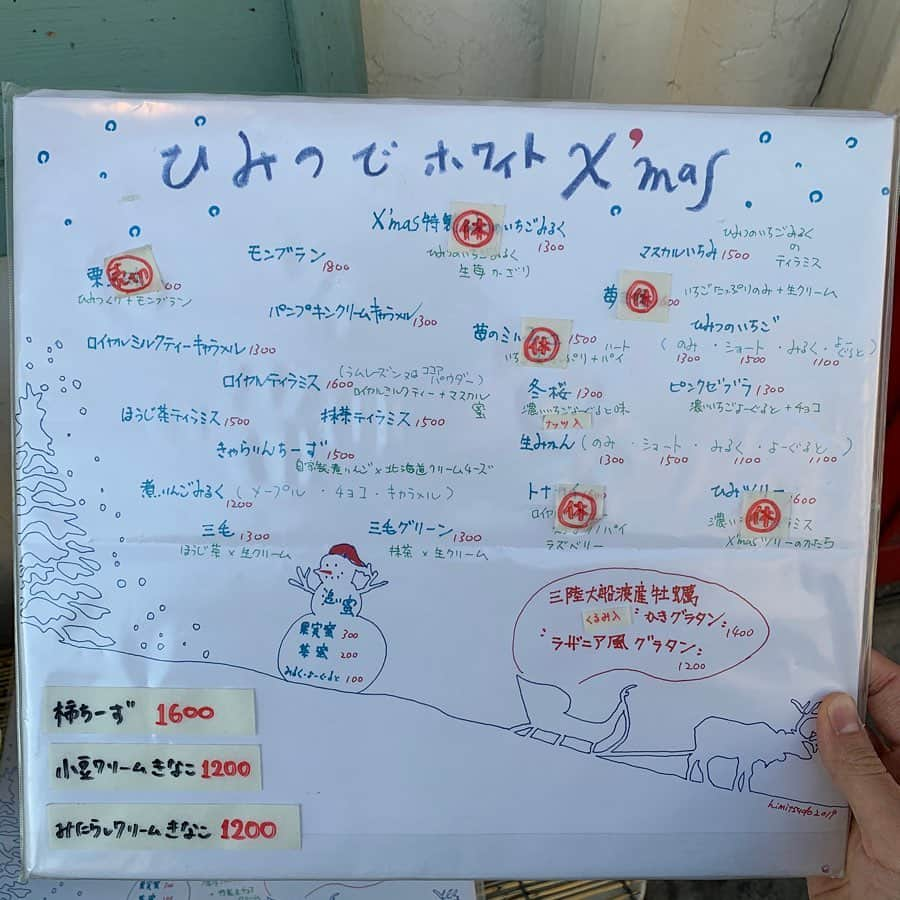 ひみつでホワイトX'mas
X'mas特製 休 いちごみるく 1300
ひみつのいちごみるく
生苺かざり
モンブラン 1800
マスカルいちみ 1500
ひみつのいちごみるく
の
ティラミス
栗
ひみつくり+モンブラン
苺 休 600
いちごたっぷりのみ+生クリーム
パンプキンクリームキャラメル 1300
苺のミル 休 1500
いち ハート
ぷり+パイ
ひみつのいちご
(のみ・ショート・みるく・よーぐると)
1300 1500 1100
ロイヤルミルクティーキャラメル 1300
ロイヤルティラミス 1600
(ラムレーズン又はココアパウダー)
ロイヤルミルクティー+マスカル
蜜
冬桜 1300
濃いちごよーぐると味
ナッツ入
ピンクゼブラ 1300
濃いちごよーぐると+チョコ
ほうじ茶ティラミス 1500
抹茶ティラミス 1500
きゃらりんちーず 1500
自家製煮りんご×北海道クリームチーズ
生みかん(のみ・ショート・みるく・よーぐると)
1300 1500 1100 1100
煮りんごみるく(メープル・チョコ・キャラメル)
1200
トナ 休
ロイヤ パイ
ラズベリー
ひみツリー 1600
濃い 休 ラミス
X'masツリーのかたち
三毛 1300
ほうじ茶×生クリーム
三毛グリーン 1300
抹茶×生クリーム
追い蜜
果実蜜 300
茶蜜 200
みるく・よーぐると 100
三陸大船渡産牡蠣
くるみ入 かきグラタン 1400
ラザニア風グラタン
1200
柿ちーず 1600
小豆クリームきなこ 1200
みたらしクリームきなこ 1200
himitsudo 2019